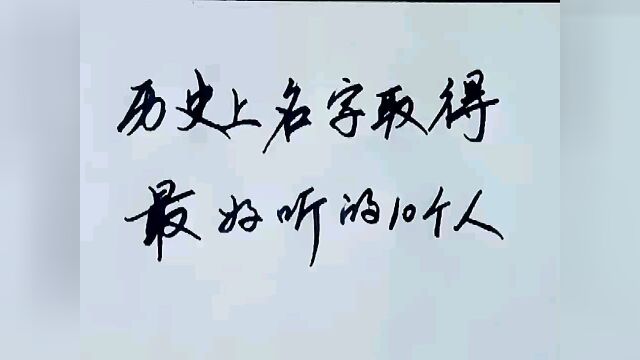 历史上名字取得
最好听的10个人